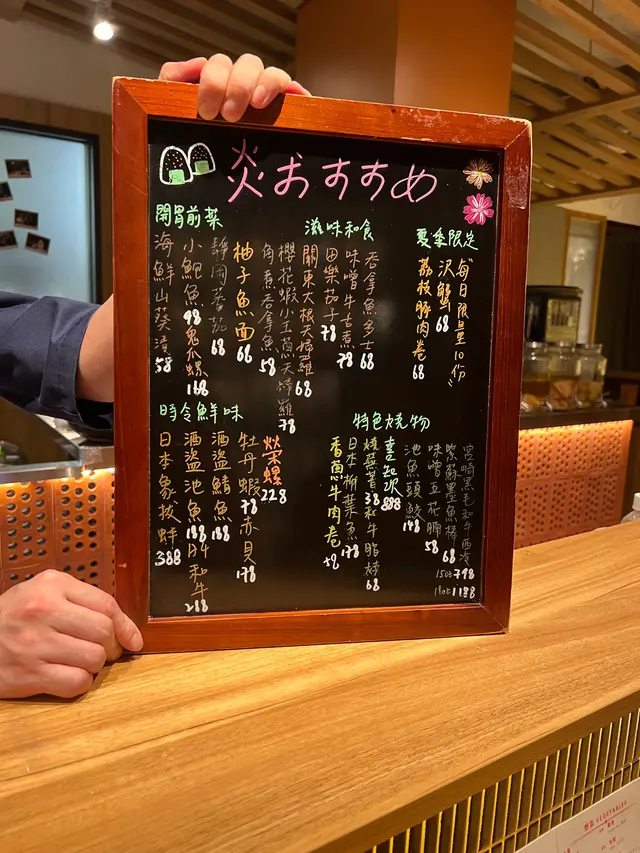 炎おすすめ
開胃前菜
海鮮山葵漬 58
小鮑魚 98
鬼爪螺 168
靜岡蕃茄 68
柚子魚面 66
滋味和食
角煮吞拿魚 58
櫻花蝦小玉蔥天婦羅 78
關東大根天婦羅 68
田樂茄子 78
味噌牛舌煮 78
吞拿魚多士 68
夏季限定
荔枝豚肉卷 68
沢蟹 68
"每日限量10份"
時令鮮味
日本象拔蚌 388
酒盜池魚 188
酒盜鯖魚 188
牡丹蝦 78
赤貝 178
和牛 268
榮螺 228
特色燒物
香蔥牛肉卷 59
日本柳葉魚 178
燒蘇薯 38
和牛脂燒 68
喜知次 888
池魚頭鮫 148
味噌豆花腩 58
紫蘇墨魚棒 68
宮崎黑毛和牛西冷
15oz 798
18oz 1188
野菜 VEGETABLES